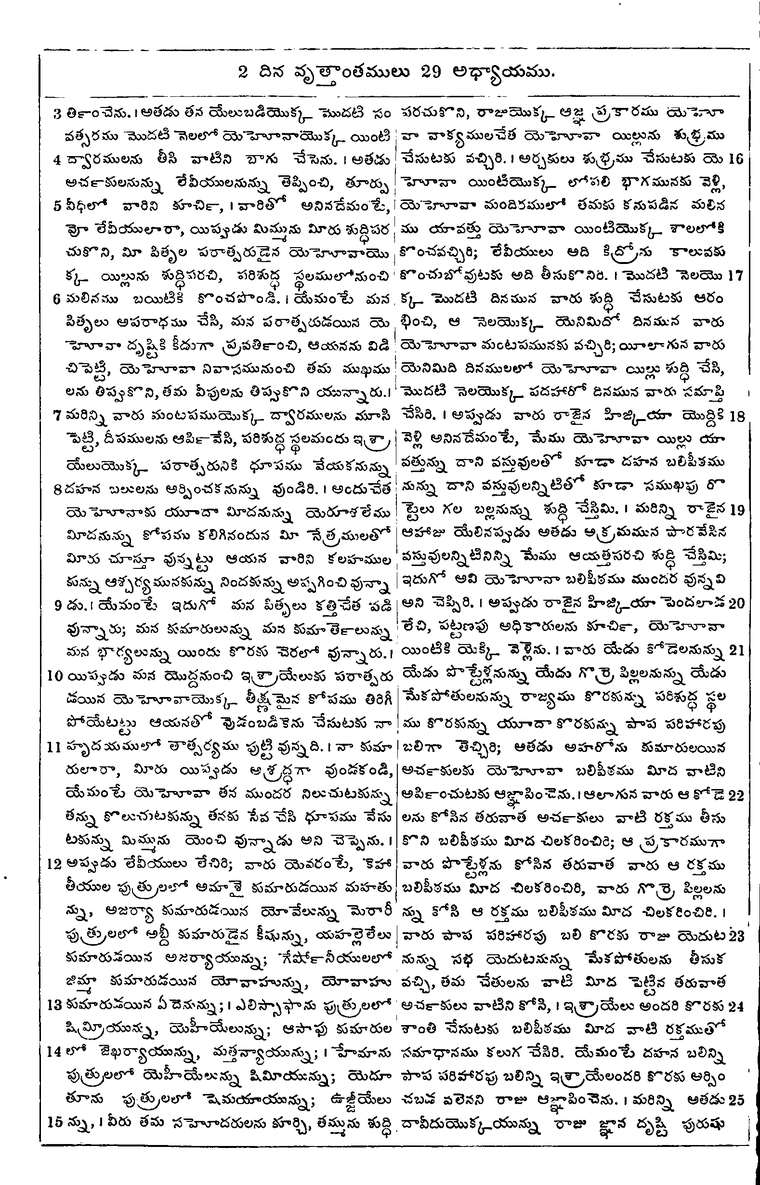 2 దిన వృత్తాంతములు 29 అధ్యాయము.
3 తికాంచెను. । అతడు తన యేలుబడియొక్క మొదటి సం
వత్సరము మొదటి నెలలో యెహోవాయొక్క యింటి
4 ద్వారములను తీసి వాటిని బాగు చేసెను. । అతడు
అర్చకులనున్ను లేవీయులనున్ను తెప్పించి, తూర్పు
5 వీధిలో వారిని కూర్చి, । వారితో అనినదేమంటే,
వో లేవీయులారా, యిప్పుడు మిమ్మును మీరు శుద్ధిపర
చుకొని, మీ పితృల పరాత్పరుడైన యెహోవాయొ
క్క యిల్లును శుద్ధిపరచి, పరిశుద్ధ స్థలములోనుంచి
6 మలినము బయిటికి కొంచపొండి. । యేమంటే మన
పితృలు అపరాధము చేసి, మన పరాత్పరుడయిన యె
హోవా దృష్టికి కీడుగా ప్రవర్తించి, ఆయనను విడి
చిపెట్టి, యెహోవా నివాసమునుంచి తమ ముఖము
లను తిప్పుకొని, తమ వీపులను తిప్పుకొని యున్నారు. ।
7 మరిన్ని వారు మంటపముయొక్క ద్వారములను మూసి
పెట్టి, దీపములను ఆర్పివేసి, పరిశుద్ధ స్థలమందు ఇశ్రా
యేలుయొక్క పరాత్పరునికి ధూపము వేయకనున్ను
8 దహన బలులను అర్పించకనున్ను వుండిరి. । అందుచేత
యెహోవాకు యూదా మీదనున్ను యెరూశలేము
మీదనున్ను కోపము కలిగినందున మీ నేత్రములతో
మీరు చూస్తూ వున్నట్టు ఆయన వారిని కలహముల
కున్ను ఆశ్చర్యమునకున్ను నిందకున్ను అప్పగించి వున్నా
9 డు. । యేమంటే ఇదుగో మన పితృలు కత్తిచేత పడి
వున్నారు; మన కుమారులున్ను మన కుమార్తెలున్ను
మన భార్యలున్ను యిందు కొరకు చెరలో వున్నారు. ।
10 యిప్పుడు మన యొద్దనుంచి ఇశ్రాయేలుకు పరాత్పరు
డయిన యెహోవాయొక్క తీక్ష్ణమైన కోపము తిరిగి
పోయేటట్టు ఆయనతో వుడంబడికెను చేసుటకు నా
11 హృదయములో తాత్పర్యము పుట్టి వున్నది. । నా కుమా
రులారా, మీరు యిప్పుడు అశ్రద్ధగా వుండకండి,
యేమంటే యెహోవా తన ముందర నిలుచుటకున్ను
తన్ను కొలుచుటకున్ను తనకు సేవ చేసి ధూపము వేసు
టకున్ను మిమ్మును యెంచి వున్నాడు అని చెప్పెను. ।
12 అప్పుడు లేవీయులు లేచిరి; వారు యెవరంటే, కెహా
తీయుల పుత్రులలో అమాశై కుమారుడయిన మహతు
న్ను, అజర్యా కుమారుడయిన యోవేలున్ను మెరారీ
పుత్రులలో అబ్దీ కుమారుడైన కీషున్ను, యహల్లెలేలు
కుమారుడయిన అజర్యాయున్ను; గేషోనీయులలో
జిమ్మా కుమారుడయిన యోవాహున్ను, యోవాహు
13 కుమారుడయిన ఏదెనున్ను; । ఎలిస్సాఫాను పుత్రులలో
షిమ్రీయున్ను, యెహీయేలున్ను; ఆసాఫు కుమారుల
14 లో జెఖర్యాయున్ను, మత్తన్యాయున్ను; । హేమాను
పుత్రులలో యెహీయేలున్ను షిమీయున్ను; యెదూ
తూను పుత్రులలో షెమయాయున్ను; ఉజ్జీయేలు
15 న్ను, । వీరు తమ సహోదరులను కూర్చి, తమ్మును శుద్ధి
పరచుకొని, రాజుయొక్క ఆజ్ఞ ప్రకారము యెహో
వా వాక్యములచేత యెహోవా యిల్లును శుభ్రము
చేసుటకు వచ్చిరి. । అర్చకులు శుభ్రము చేసుటకు యె 16
హోవా యింటియొక్క లోపలి భాగమునకు వెళ్లి,
యెహోవా మందిరములో తమకు కనుపడిన మలిన
ము యావత్తు యెహోవా యింటియొక్క శాలలోకి
కొంచవచ్చిరి; లేవీయులు అది కిద్రోను కాలువకు
కొంచుబోవుటకు అది తీసుకొనిరి. । మొదటి నెలయొ 17
క్క మొదటి దినమున వారు శుద్ధి చేసుటకు ఆరం
భించి, ఆ నెలయొక్క యెనిమిదో దినమున వారు
యెహోవా మంటపమునకు వచ్చిరి; యీలాగున వారు
యెనిమిది దినములలో యెహోవా యిల్లు శుద్ధి చేసి,
మొదటి నెలయొక్క పదహారో దినమున వారు సమాప్తి
చేసిరి. । అప్పుడు వారు రాజైన హిజ్కియా యొద్దికి 18
వెళ్లి అనినదేమంటే, మేము యెహోవా యిల్లు యా
వత్తున్ను దాని వస్తువులతో కూడా దహన బలిపీఠము
నున్ను దాని వస్తువులన్నిటితో కూడా సముఖపు రొ
ట్టెలు గల బల్లనున్ను శుద్ధి చేస్తిమి. । మరిన్ని రాజైన 19
ఆహాజు యేలినప్పుడు అతడు అక్రమమున పారవేసిన
వస్తువులన్నిటినిన్ని మేము ఆయత్తపరచి శుద్ధి చేస్తిమి;
ఇదుగో అవి యెహోవా బలిపీఠము ముందర వున్నవి
అని చెప్పిరి. । అప్పుడు రాజైన హిజ్కియా పెందలాడ 20
లేచి, పట్టణపు అధికారులను కూర్చి, యెహోవా
యింటికి యెక్కి వెళ్లెను. । వారు యేడు కోడెలనున్ను 21
యేడు పొట్టేళ్లనున్ను యేడు గొర్రె పిల్లలనున్ను యేడు
మేకపోతులనున్ను రాజ్యము కొరకున్ను పరిశుద్ధ స్థల
ము కొరకున్ను యూదా కొరకున్ను పాప పరిహారపు
బలిగా తెచ్చిరి; అతడు అహరోను కుమారులయిన
అర్చకులకు యెహోవా బలిపీఠము మీద వాటిని
అర్పించుటకు ఆజ్ఞాపించెను. । ఆలాగున వారు ఆ కోడె 22
లను కోసిన తరువాత అర్చకులు వాటి రక్తము తీసు
కొని బలిపీఠము మీద చిలకరించిరి; ఆ ప్రకారముగా
వారు పొట్టేళ్లను కోసిన తరువాత వారు ఆ రక్తము
బలిపీఠము మీద చిలకరించిరి, వారు గొర్రె పిల్లలను
న్ను కోసి ఆ రక్తము బలిపీఠము మీద చిలకరించిరి. ।
వారు పాప పరిహారపు బలి కొరకు రాజు యెదుట 23
నున్ను సభ యెదుటనున్ను మేకపోతులను తీసుక
వచ్చి, తమ చేతులను వాటి మీద పెట్టిన తరువాత
అర్చకులు వాటిని కోసి, । ఇశ్రాయేలు అందరి కొరకు 24
శాంతి చేసుటకు బలిపీఠము మీద వాటి రక్తముతో
సమాధానము కలుగ చేసిరి. యేమంటే దహన బలిన్ని
పాప పరిహారపు బలిన్ని ఇశ్రాయేలందరి కొరకు అర్పిం
చబడ వలెనని రాజు ఆజ్ఞాపించెను. । మరిన్ని అతడు 25
దావీదుయొక్కయున్ను రాజు జ్ఞాన దృష్టి పురుషు